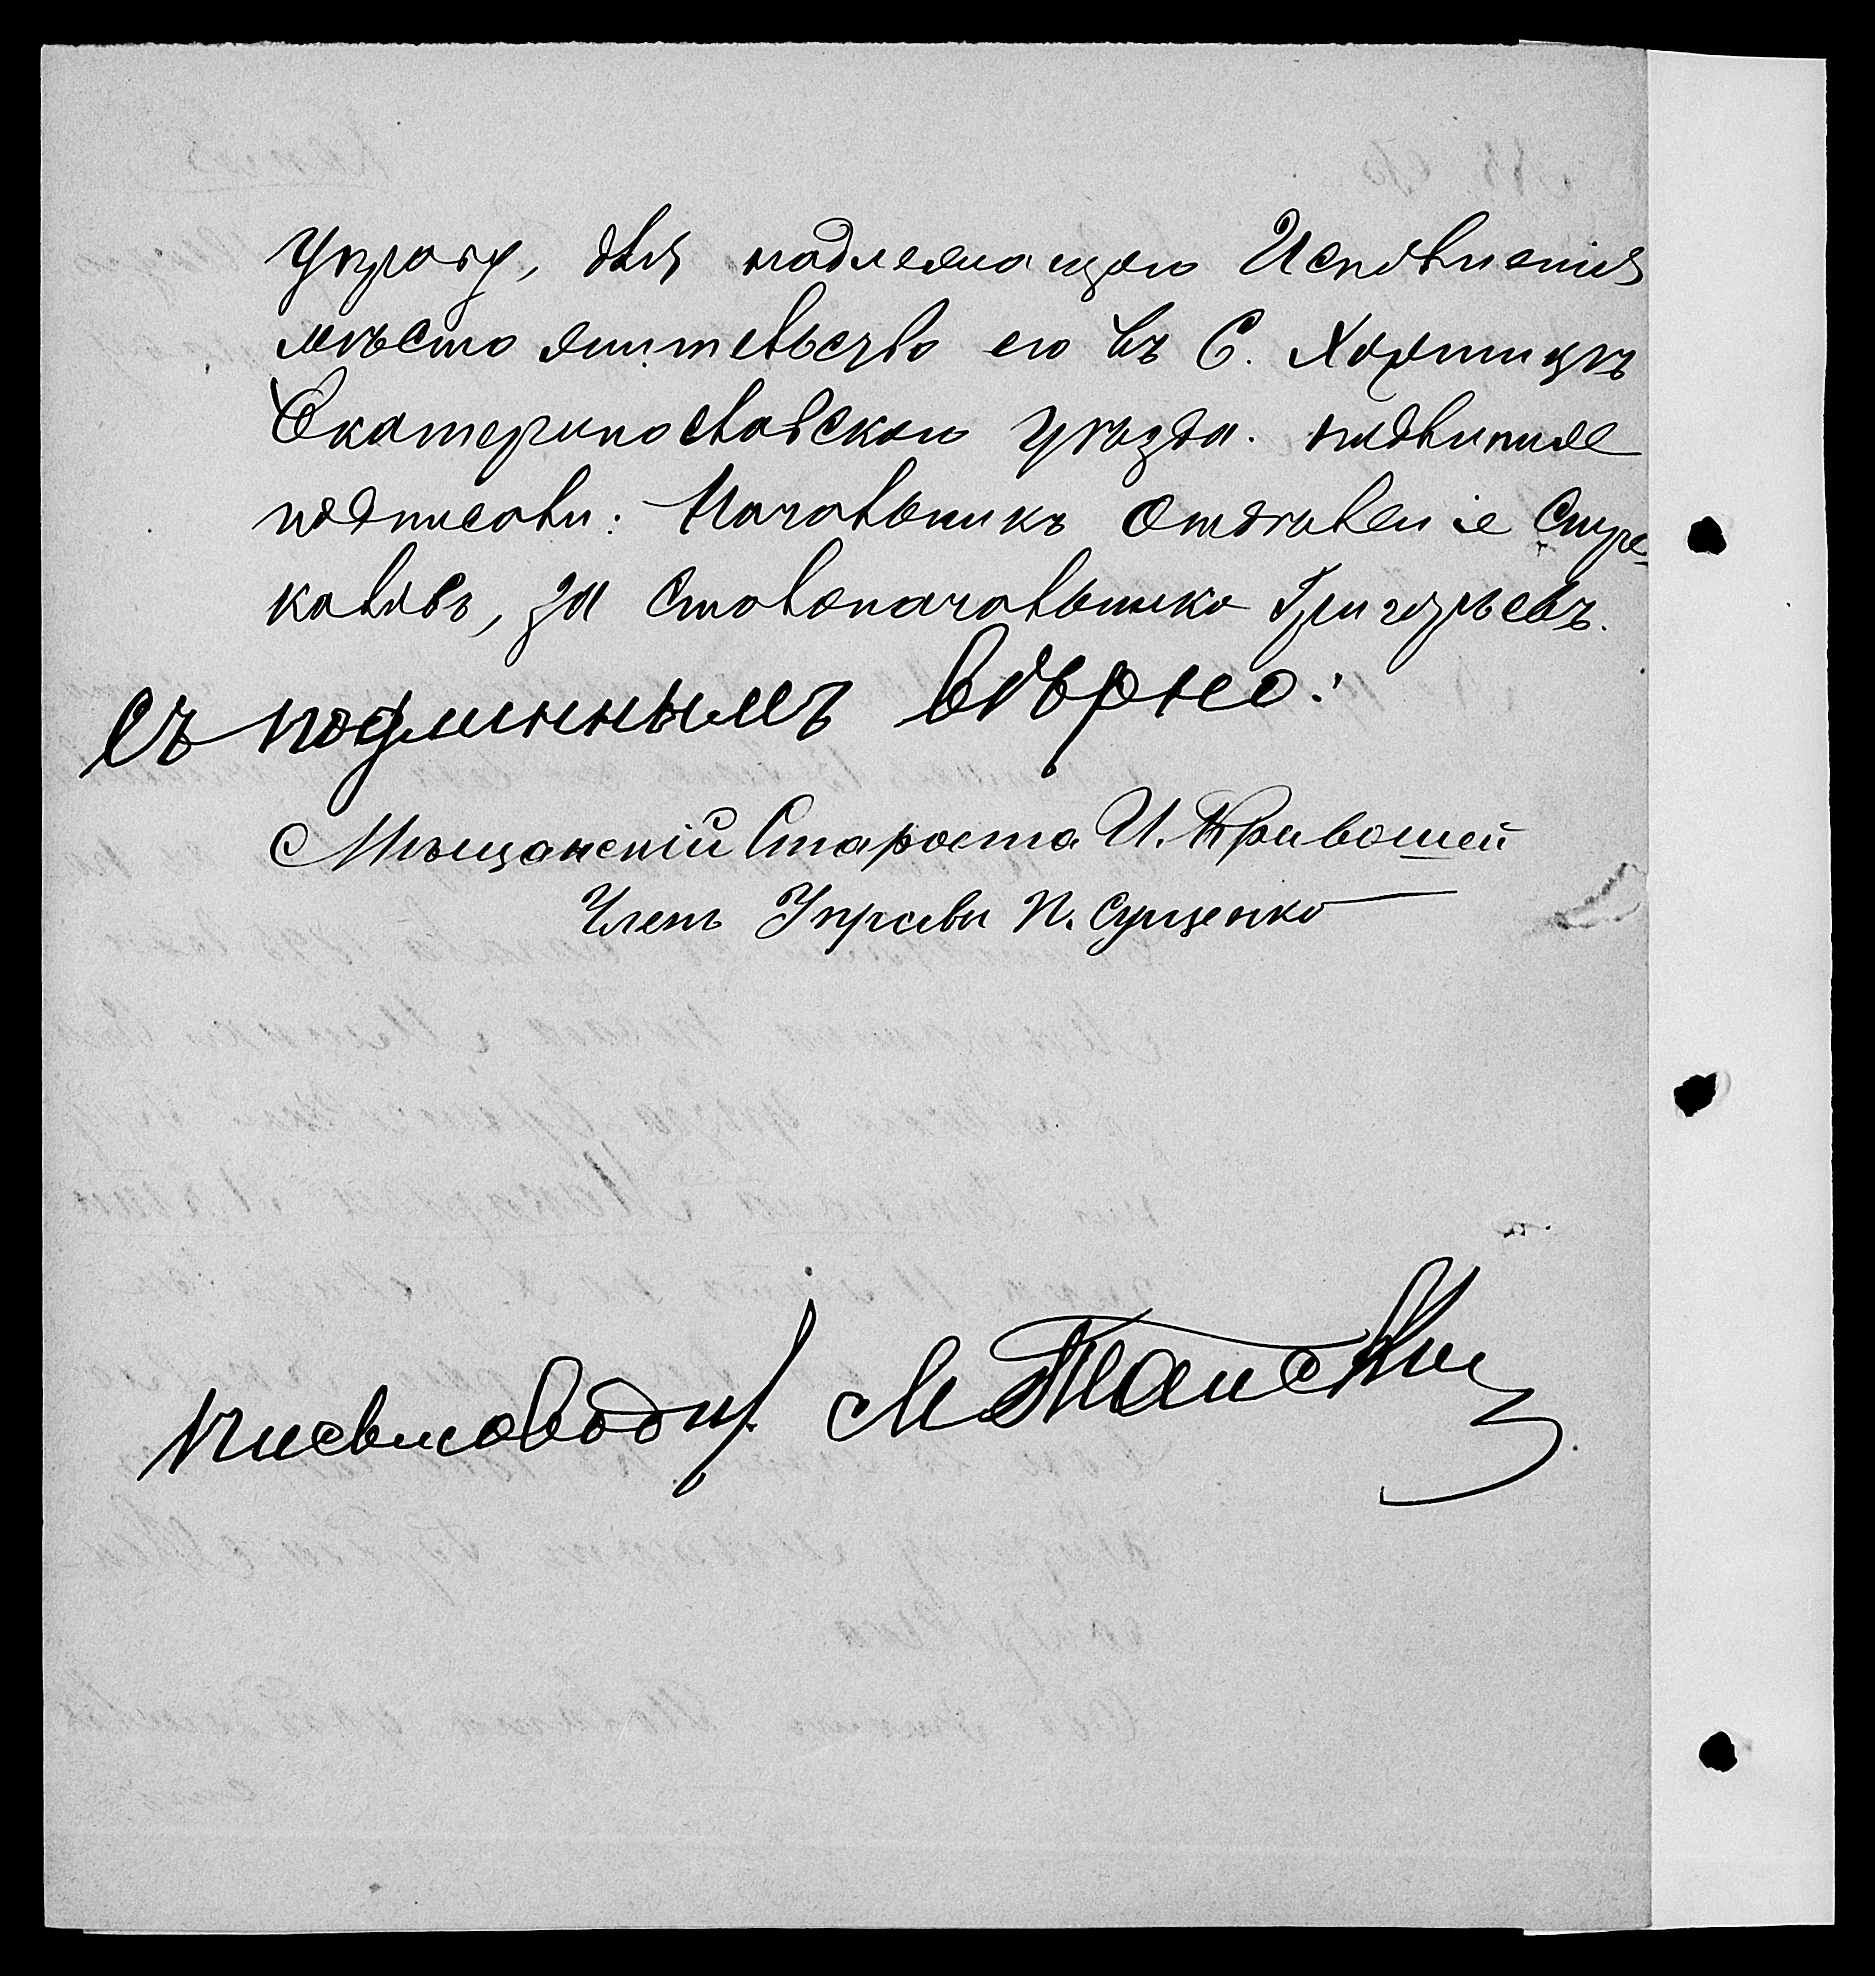 Управу, для надлежащаго Исполненія
мѣсто жительство его въ С. Хортицѣ
Екатеринославскаго уѣзда. подлинное
подписали: Начальникъ Отдѣленіе Стре-
каловъ, за Столоначальника Григорьевъ.
съ подлиннымъ вѣрно:
Мѣщанскій Староста И. Кривошей
Членъ Управы П. Сущенко
письмоводит. М